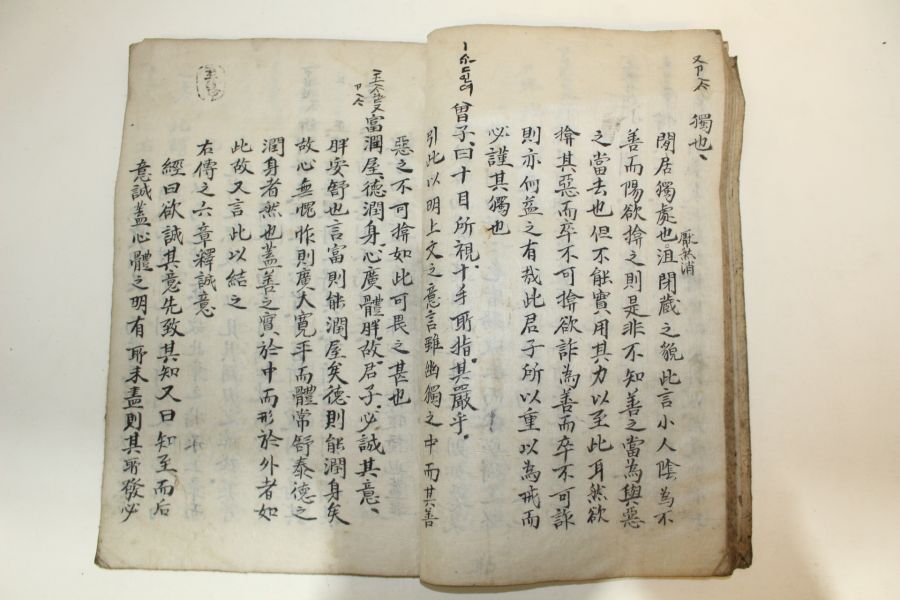 獨也、
閒居獨處也厭然消沮閉藏之貌此言小人陰為不
善而陽欲揜之則是非不知善之當為與惡
之當去也但不能實用其力以至此耳然欲
揜其惡而卒不可揜欲詐為善而卒不可詐
則亦何益之有哉此君子所以重以為戒而
必謹其獨也
曾子、曰十目所視、十手所指、其嚴乎、
引此以明上文之意言雖幽獨之中而其善
惡之不可揜如此可畏之甚也
富潤屋、德潤身、心廣體胖、故、君子、必誠其意、
胖安舒也言富則能潤屋矣德則能潤身矣
故心無愧怍則廣大寬平而體常舒泰德之
潤身者然也蓋善之實於中而形於外者如
此故又言此以結之
右傳之六章釋誠意
經曰欲誠其意先致其知又曰知至而后
意誠蓋心體之明有所未盡則其所發必